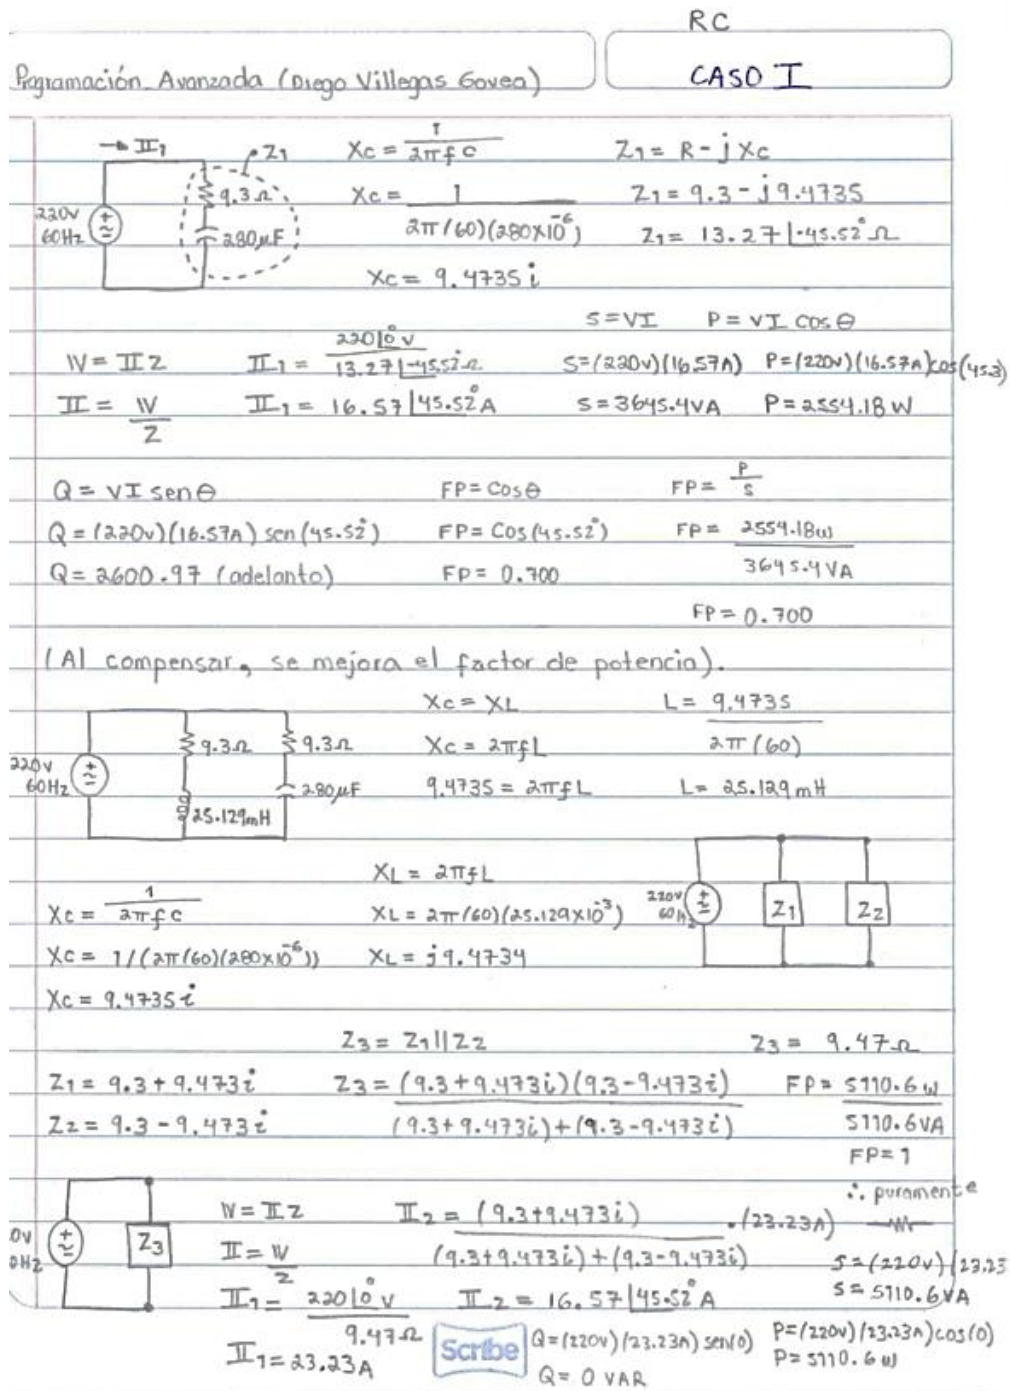 RC
Programación Avanzada (Diego Villegas Govea)
CASO I
→ II₁
Z₁
220v
60Hz
9.3Ω
280μF
Xc = 1/(2πfc)
Xc = 1/(2π(60)(280x10⁻⁶))
Xc = 9.4735 i
Z₁ = R - j Xc
Z₁ = 9.3 - j 9.4735
Z₁ = 13.27 ∠-45.52° Ω
V = II Z
II = V/Z
II₁ = 220∠0° v / 13.27∠-45.52° Ω
II₁ = 16.57 ∠45.52° A
S = VI
S = (220v)(16.57A)
S = 3645.4VA
P = VI COS θ
P = (220v)(16.57A)cos(45.3)
P = 2554.18 W
Q = VI sen θ
Q = (220v)(16.57A) sen(45.52°)
Q = 2600.97 (adelanto)
FP = Cos θ
FP = Cos(45.52°)
FP = 0.700
FP = P/S
FP = 2554.18w / 3645.4VA
FP = 0.700
(Al compensar, se mejora el factor de potencia).
220v
60Hz
9.3Ω
9.3Ω
25.129mH
280μF
Xc = XL
Xc = 2πfL
9.4735 = 2πfL
L = 9.4735 / 2π(60)
L = 25.129 mH
Xc = 1/(2πfc)
Xc = 1/(2π(60)(280x10⁻⁶))
Xc = 9.4735 i
XL = 2πfL
XL = 2π(60)(25.129x10⁻³)
XL = j9.4734
220v
60Hz
Z₁
Z₂
Z₁ = 9.3 + 9.473i
Z₂ = 9.3 - 9.473i
Z₃ = Z₁||Z₂
Z₃ = (9.3+9.473i)(9.3-9.473i) / (9.3+9.473i)+(9.3-9.473i)
Z₃ = 9.47Ω
FP = 5110.6w / 5110.6VA
FP = 1
∴ puramente
0v
0Hz
Z₃
V = II Z
II = V/Z
II₁ = 220∠0° v / 9.47Ω
II₁ = 23.23A
II₂ = (9.3+9.473i) / (9.3+9.473i)+(9.3-9.473i) · (23.23A)
II₂ = 16.57 ∠45.52° A
S = (220v)(23.23
S = 5110.6VA
Scribe
Q = (220v)(23.23A) sen(0)
Q = 0 VAR
P = (220v)(23.23A)cos(0)
P = 5110.6 w